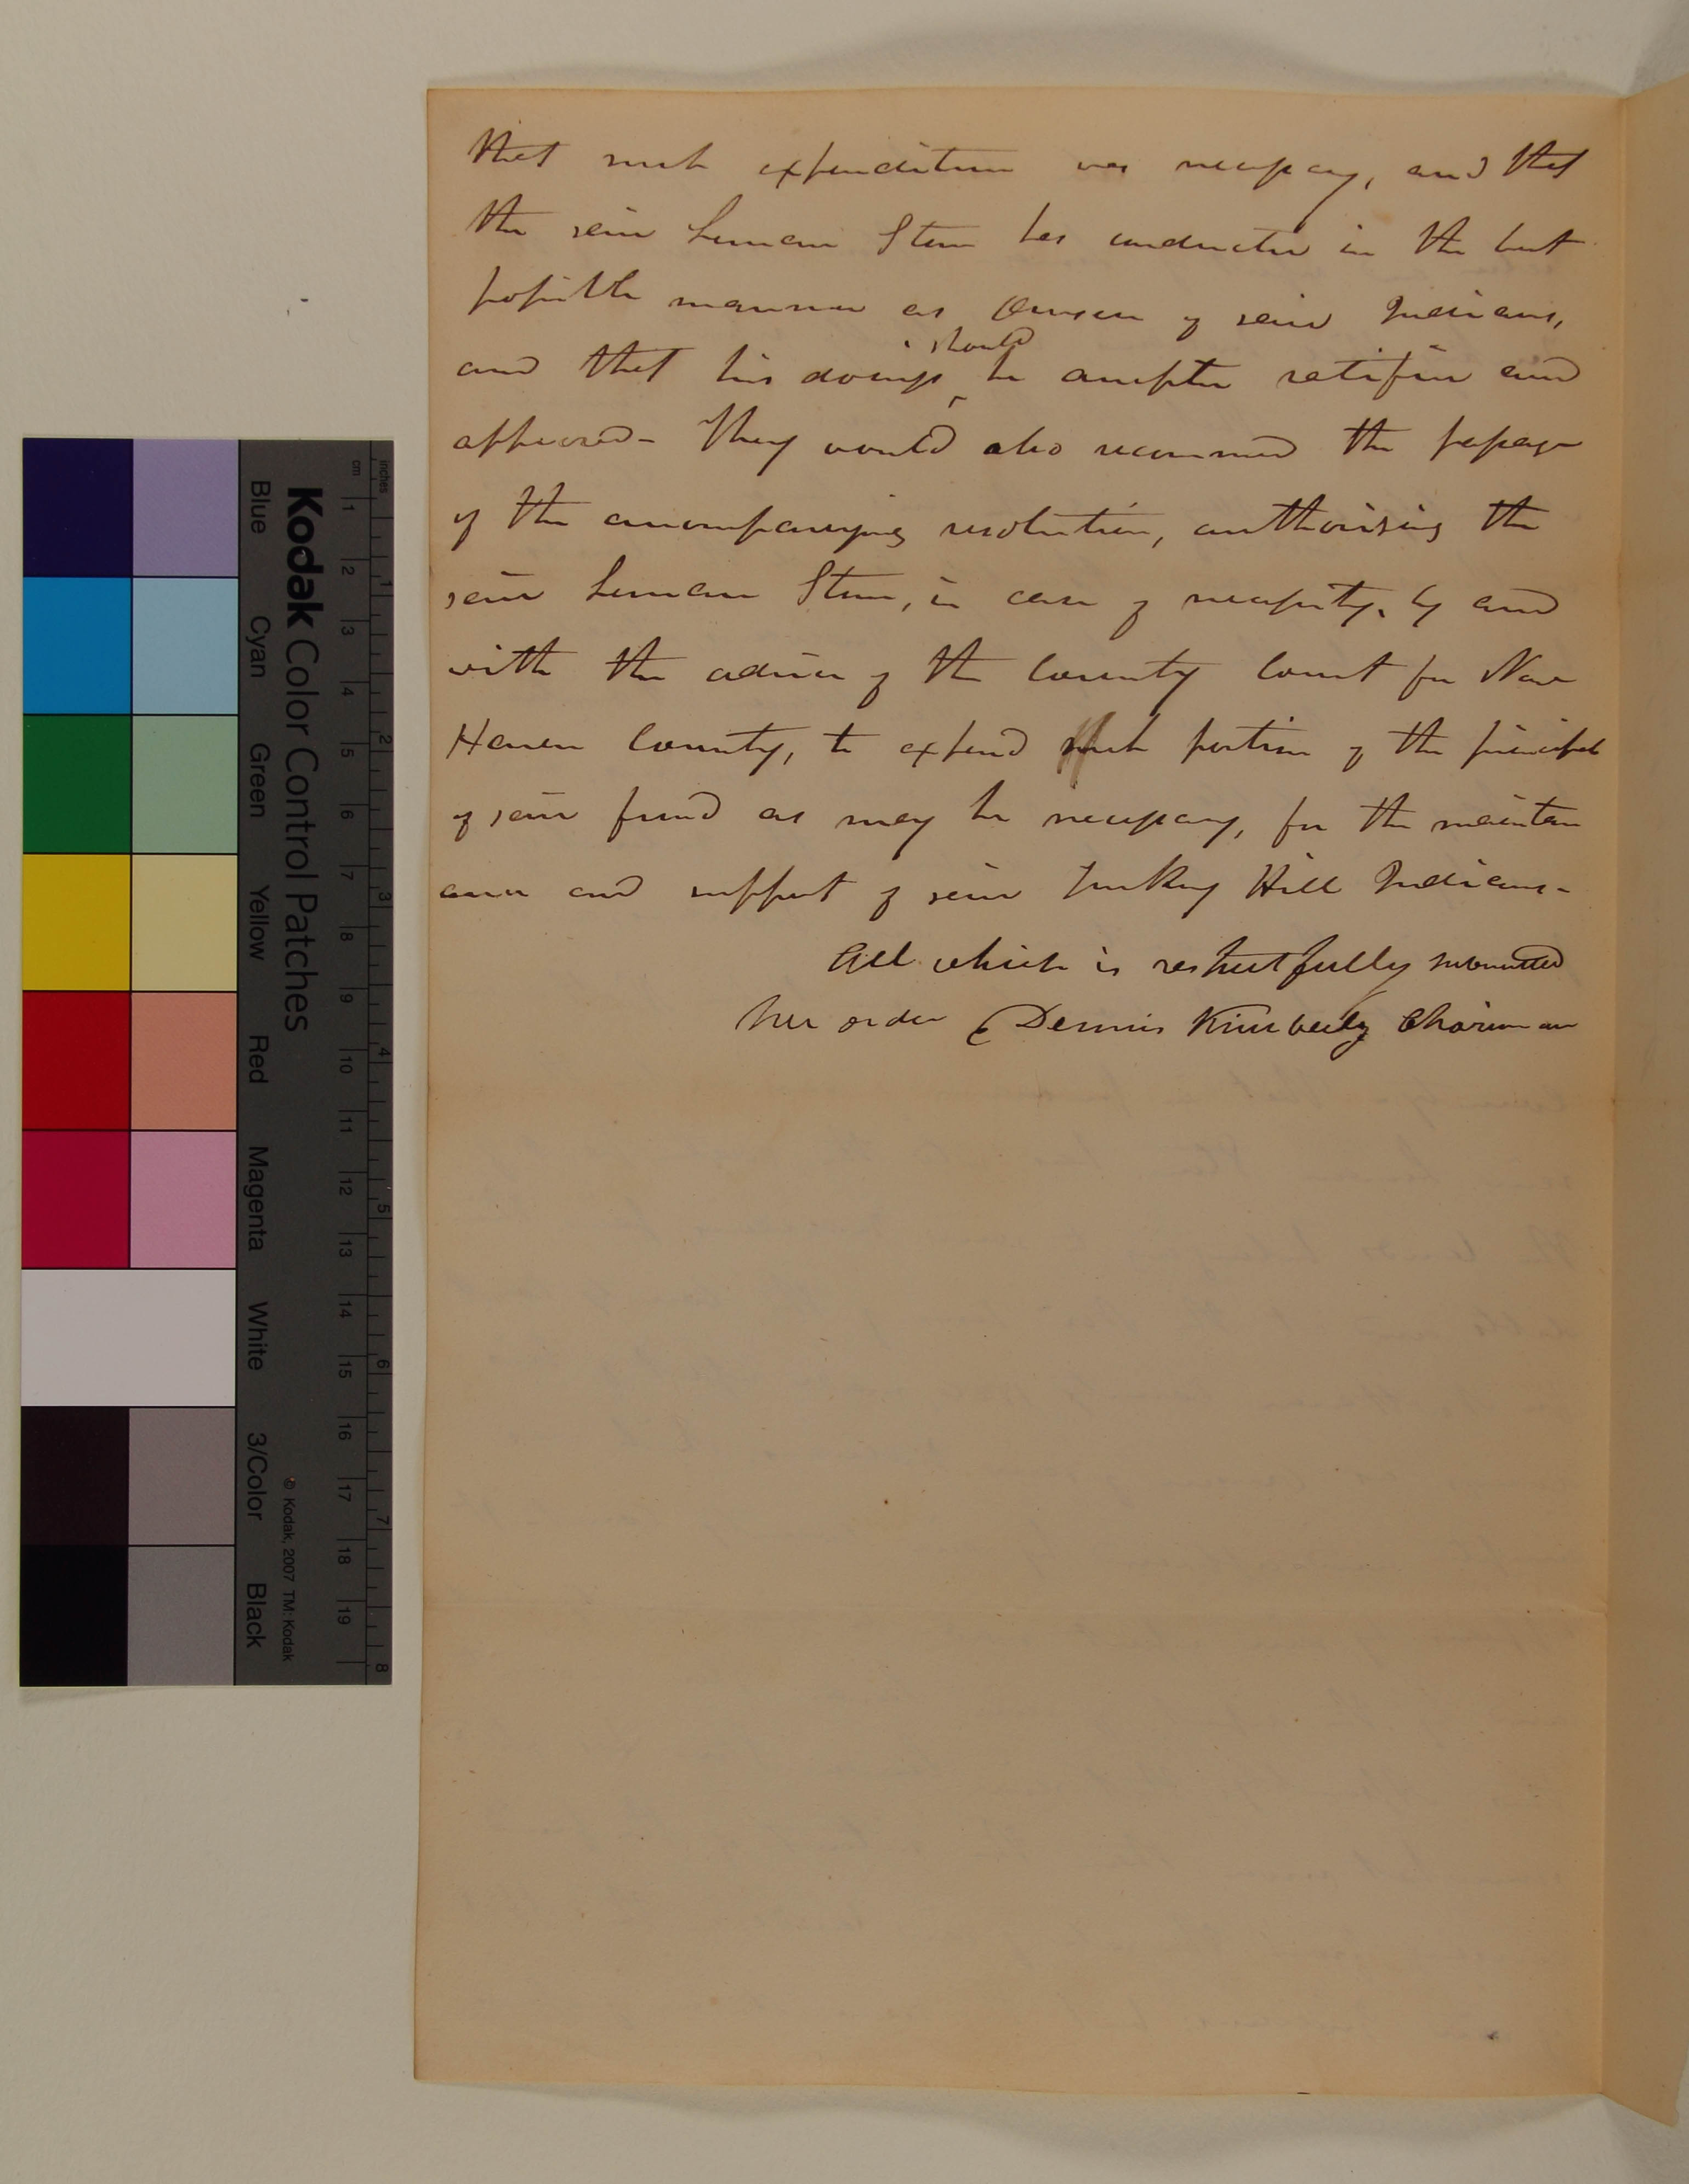 that such expenditure was necessary, and that
the said Leman Stone has conducted in the best
possible manner as Overseer of said Indians,
should
and that his doings be accepted ratified and
approved - They would also recommend the passage
of the accompanying resolution, authorising the
said Leman Stone, in case of necessity, by and
with the advice of the County Court for New
Haven County, to expend such portion of the principal
of said fund as may be necessary, for the mainten
ance and support of said Turkey Hill Indians -
All which is respectfully submitted
Per order Dennis Kimberly Chairman
Kodak Color Control Patches
Blue Cyan Green Yellow Red Magenta White 3/Color Black
© Kodak, 2007 TM: Kodak
inches 1 2 3 4 5 6 7 8
cm 1 2 3 4 5 6 7 8 9 10 11 12 13 14 15 16 17 18 19